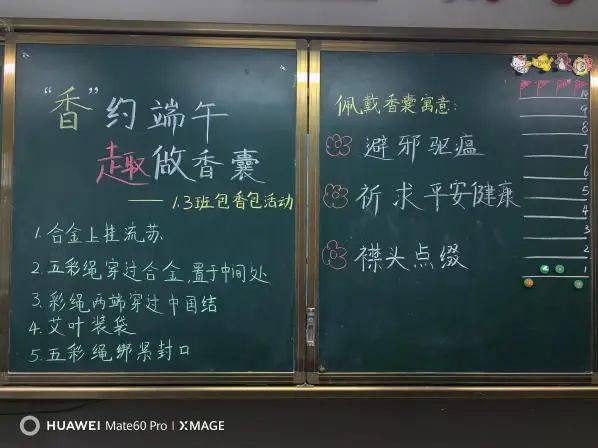 “香”约端午
趣做香囊
——1.3班包香包活动
1.合金上挂流苏
2.五彩绳穿过合金,置于中间处
3.彩绳两端穿过中国结
4.艾叶装袋
5.五彩绳绑紧封口
佩戴香囊寓意:
避邪驱瘟
祈求平安健康
襟头点缀
10
9
8
7
6
5
4
3
2
1
HUAWEI Mate60 Pro | XMAGE